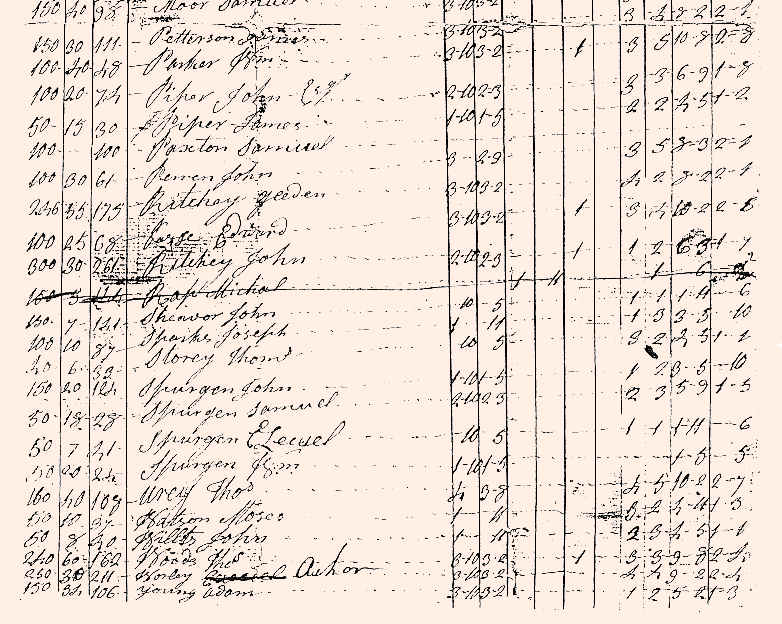 150 40 98 Moor Samuel 3-10 3-2 3 4-8-2 2-1
150 30 111 Petterson 3-10 3-2 3 5 10-8 2-8
100-40-48 Parker Wm 3-10 3-2 1
100 20-74 Piper John Esqr 2-10 2-3 3-3-6-9 1-8
50-15 30 Piper James 1-10 1-5 2 2 4-5 1-2
100 100 Paxton Samuel 3-2-9 3 5 8-3 2-1
100 30 61 Penen John 3-10 3-2 4 2-8-2 2-1
246 55 175 Ritchey Gedden 3-10 3-2 1 3 4-10-2 2-8
100 25 68 Edward 1 1 2 6 3-1-7
300 30 261 Ritchey John 2-10 2-3
150 Michal 1 11 1 6
150-7-141 Sheavor John 10 5 1 1 1-11-6
100 10 87 Sparks Joseph 1 11 1-3 3-5-10
40 6 33 Storey Thoms 10 5 2 2 4-5 1-1
150 20 124 Spurgen John 1-10 1-5 1 2 3-5-10
50-18-28 Spurgen Samuel 2-10 2-3 2 3 5-9 1-5
50 7 21 Spurgen Lewel 10 5 1 1 1-11-6
150 20 24 Spurgen Wm 1-10 1-5 1-5 5
160 40 108 Urey Thos 4 3-8 4 5 10-2 2-7
50 10 37 Watson Moses 1 11 3-2 4-11 1-3
50 8 30 Willts John 1 11 2 3 4-5 1-1
240 60-162 Woods Thos 3-10 3-2 1 3 3 9-8 2-4
250 30 211 Worley Achor 3-10 3-2 4 4 9 2 2-4
150 34 106 Young Adam 3-10 3-2 1 2 5-2 1-3